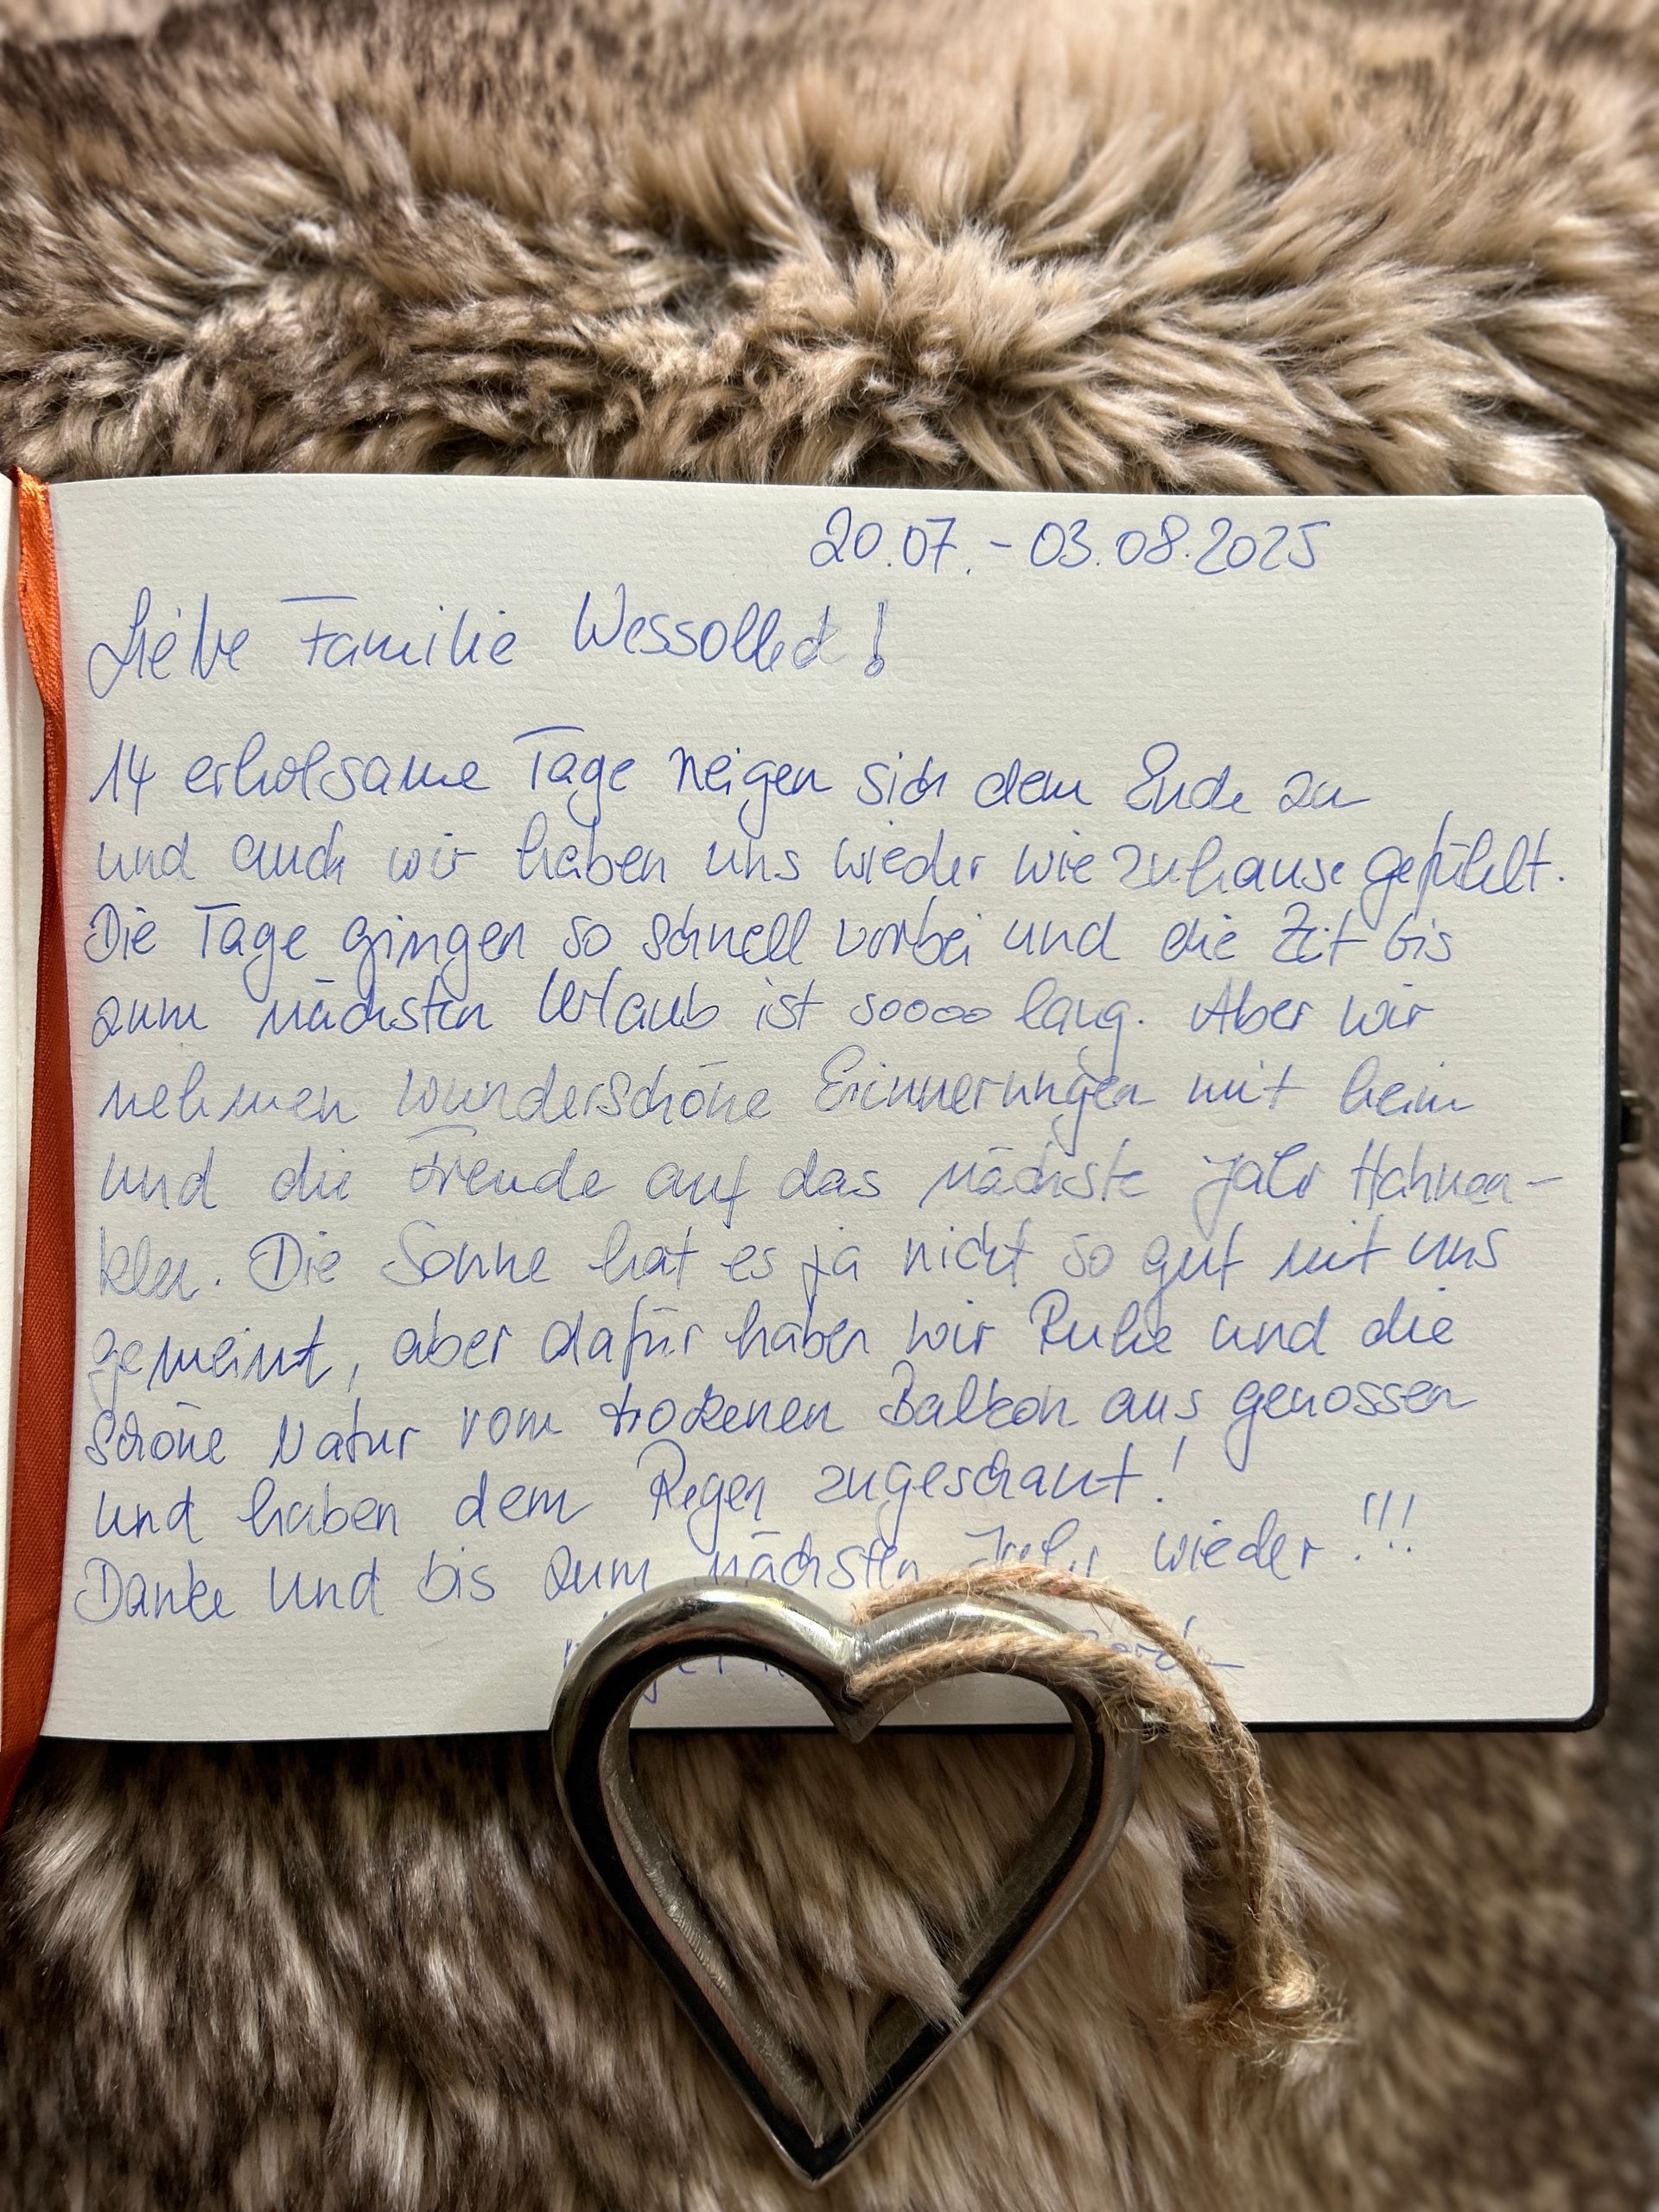 20.07. - 03.08.2025
Liebe Familie Wessolleck!
14 erholsame Tage neigen sich dem Ende zu
und auch wir haben uns wieder wie zuhause gefühlt.
Die Tage gingen so schnell vorbei und die Zeit bis
zum nächsten Urlaub ist soooo lang. Aber wir
nehmen wunderschöne Erinnerungen mit heim
und die Freude auf das nächste Jahr Hahnen-
klee. Die Sonne hat es ja nicht so gut mit uns
gemeint, aber dafür haben wir Ruhe und die
schöne Natur vom trockenen Balkon aus genossen
und haben dem Regen zugeschaut!
Danke und bis zum nächsten Jahr wieder!!!